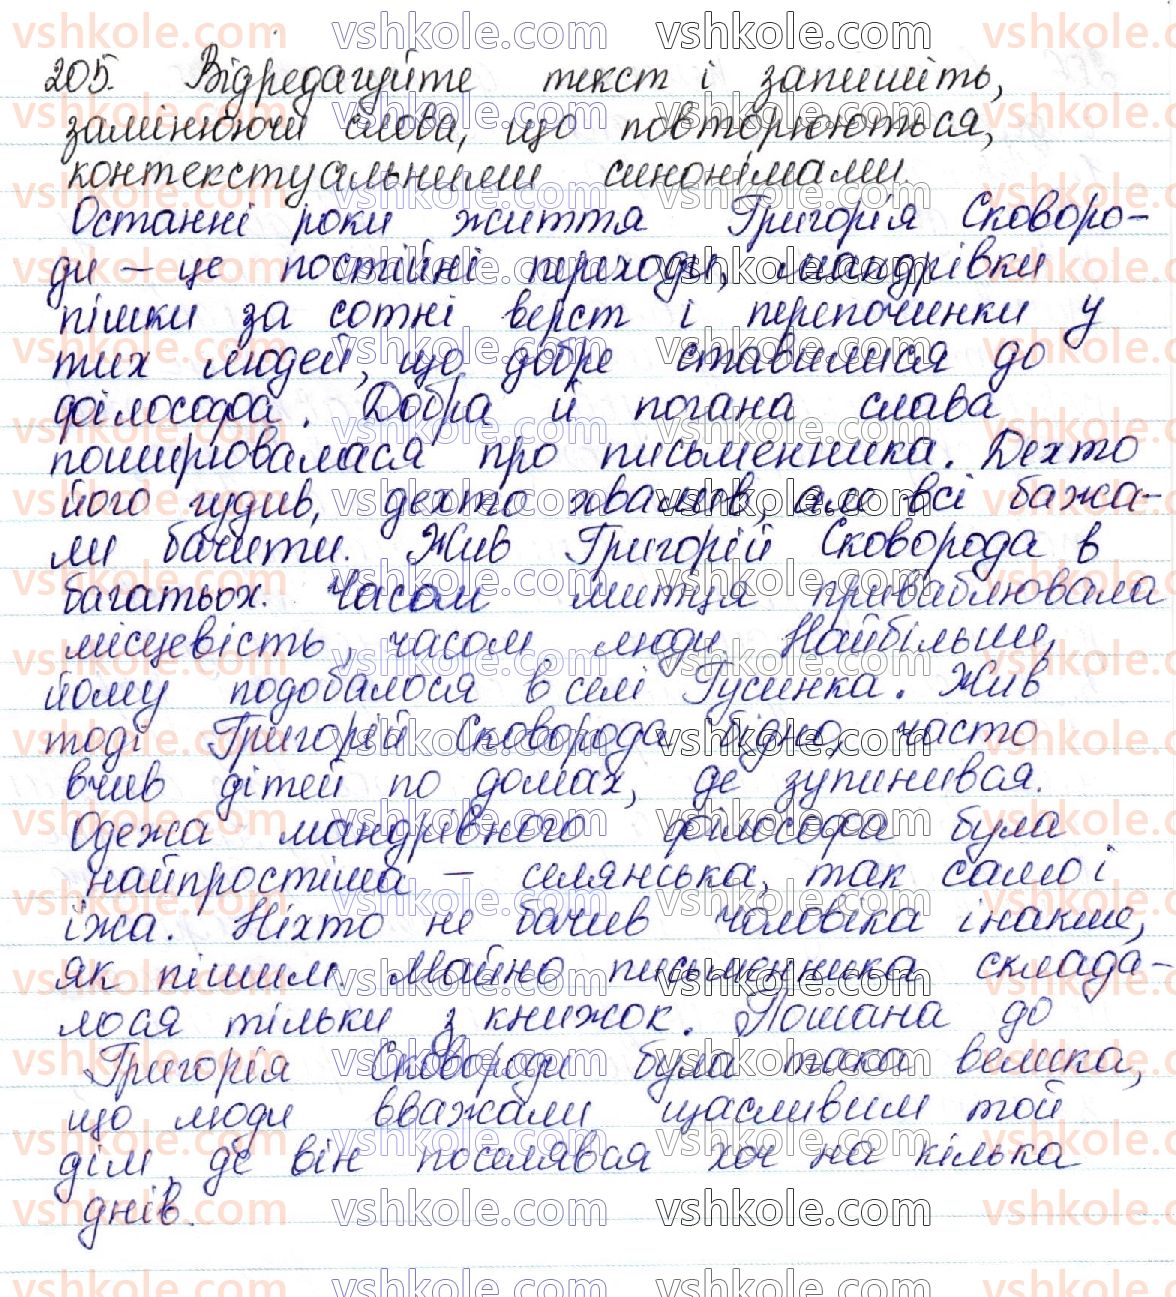 205. Відредагуйте текст і запишіть,
замінюючи слова, що повторюються,
контекстуальними синонімами.
Останні роки життя Григорія Сковоро-
ди – це постійні переходи, мандрівки
пішки за сотні верст і перепочинки у
тих людей, що добре ставилися до
філософа. Добра й погана слава
поширювалася про письменника. Дехто
його гудив, дехто хвалив, але всі бажа-
ли бачити. Жив Григорій Сковорода в
багатьох. Часом митця приваблювала
місцевість, часом люди. Найбільше
йому подобалося в селі Гусинка. Жив
тоді Григорій Сковорода бідно, часто
вчив дітей по домах, де зупинився.
Одежа мандрівного філософа була
найпростіша – селянська, так само і
їжа. Ніхто не бачив чоловіка інакше,
як пішим. Майно письменника склада-
лося тільки з книжок. Пошана до
Григорія Сковороди була така велика,
що люди вважали щасливим той
дім, де він поселявся хоч на кілька
днів.
vshkole.com